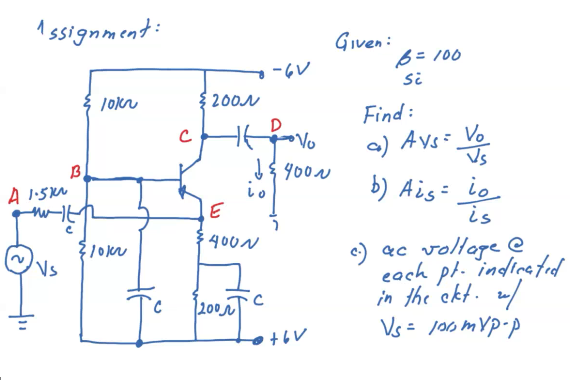 Assignment:
Given:
β = 100
Si
-6V
10KΩ
200Ω
C
D
Vo
io
400Ω
B
A
1.5KΩ
C
E
Vs
10KΩ
400Ω
C
200Ω
C
+6V
Find:
a) Avs = Vo
Vs
b) Ais = io
is
c.) ac voltage @
each pt. indicated
in the ckt. w/
Vs = 100mVp-p